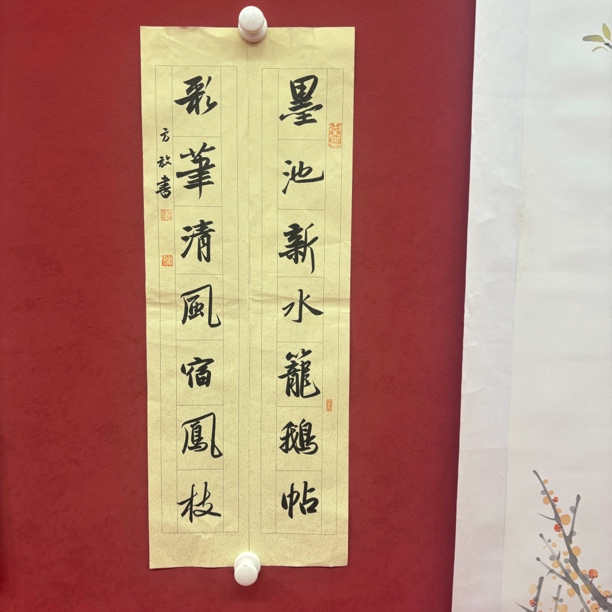 墨池新水籠鵝帖
彩筆清風宿鳳枝
方放書